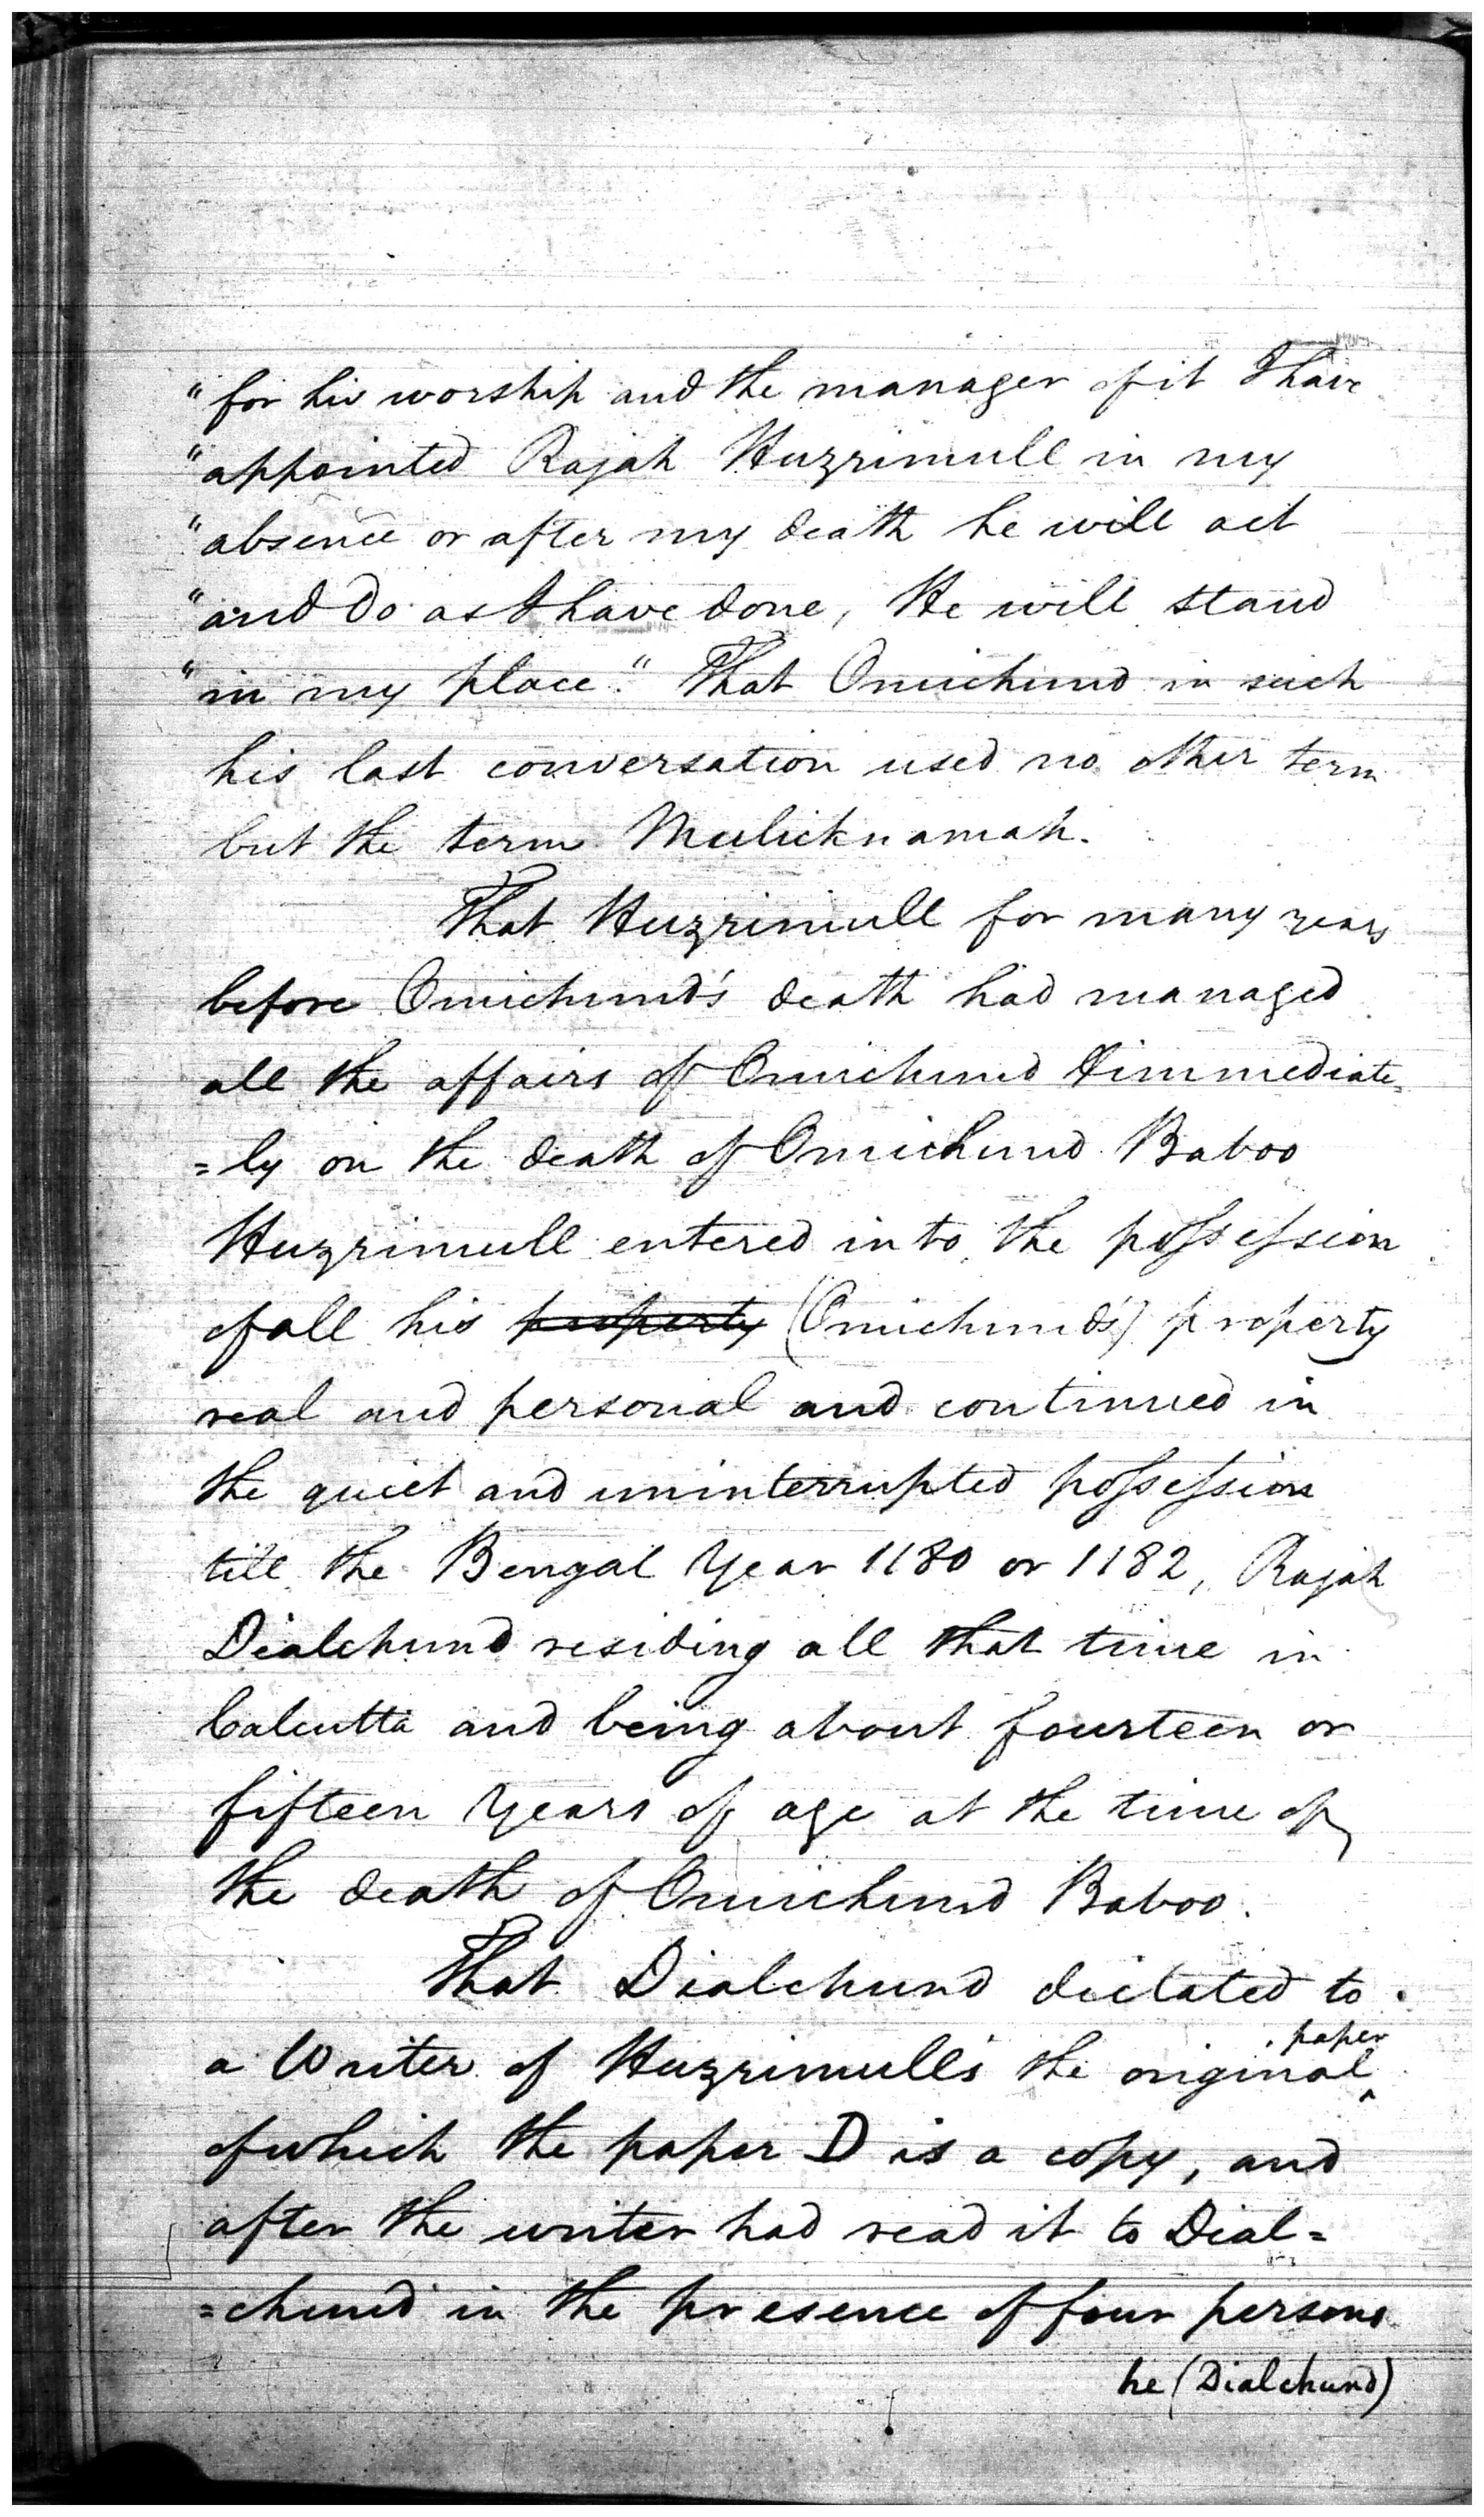 "for his worship and the manager of it I have
"appointed Rajah Huzrimull in my
"absence or after my death he will act
"and do as I have done, He will stand
"in my place." That Omichund in such
his last conversation used no other term
but the term Mulicknamah.
That Huzrimull for many years
before Omichund's death had managed
all the affairs of Omichund & immediate=
=ly on the death of Omichund Baboo
Huzrimull entered into the possession
of all his property (Omichund's) property
real and personal and continued in
the quiet and uninterrupted possession
till the Bengal Year 1180 or 1182, Rajah
Dialchund residing all that time in
Calcutta and being about fourteen or
fifteen Years of age at the time of
the death of Omichund Baboo.
That Dialchund dictated to
a Writer of Huzrimull's the original paper
of which the paper D is a copy, and
after the writer had read it to Dial=
=chund in the presence of four persons
he (Dialchund)